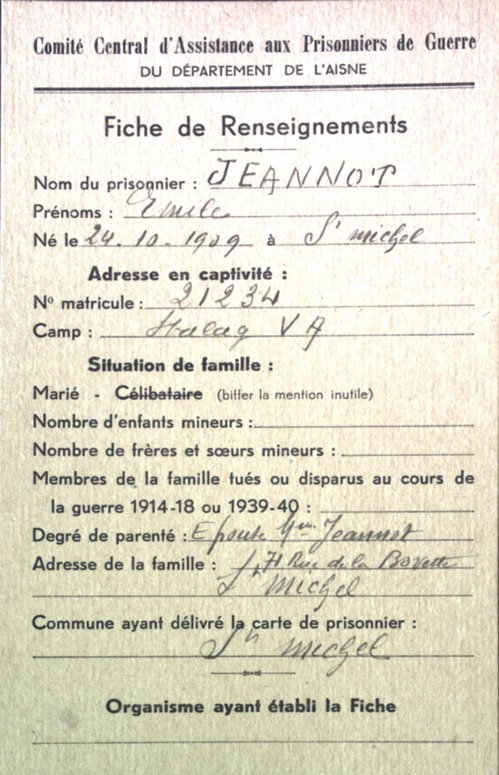 Comité Central d'Assistance aux Prisonniers de Guerre
DU DÉPARTEMENT DE L'AISNE
Fiche de Renseignements
Nom du prisonnier : JEANNOT
Prénoms : Emile
Né le 24-10-1909 à St michel
Adresse en captivité :
No matricule : 21234
Camp : Stalag V A
Situation de famille :
Marié - Célibataire (biffer la mention inutile)
Nombre d'enfants mineurs :
Nombre de frères et sœurs mineurs :
Membres de la famille tués ou disparus au cours de
la guerre 1914-18 ou 1939-40 :
Degré de parenté : Epouse Mme Jeannot
Adresse de la famille : 71 Rue de la
St Michel
Commune ayant délivré la carte de prisonnier :
St michel
Organisme ayant établi la Fiche